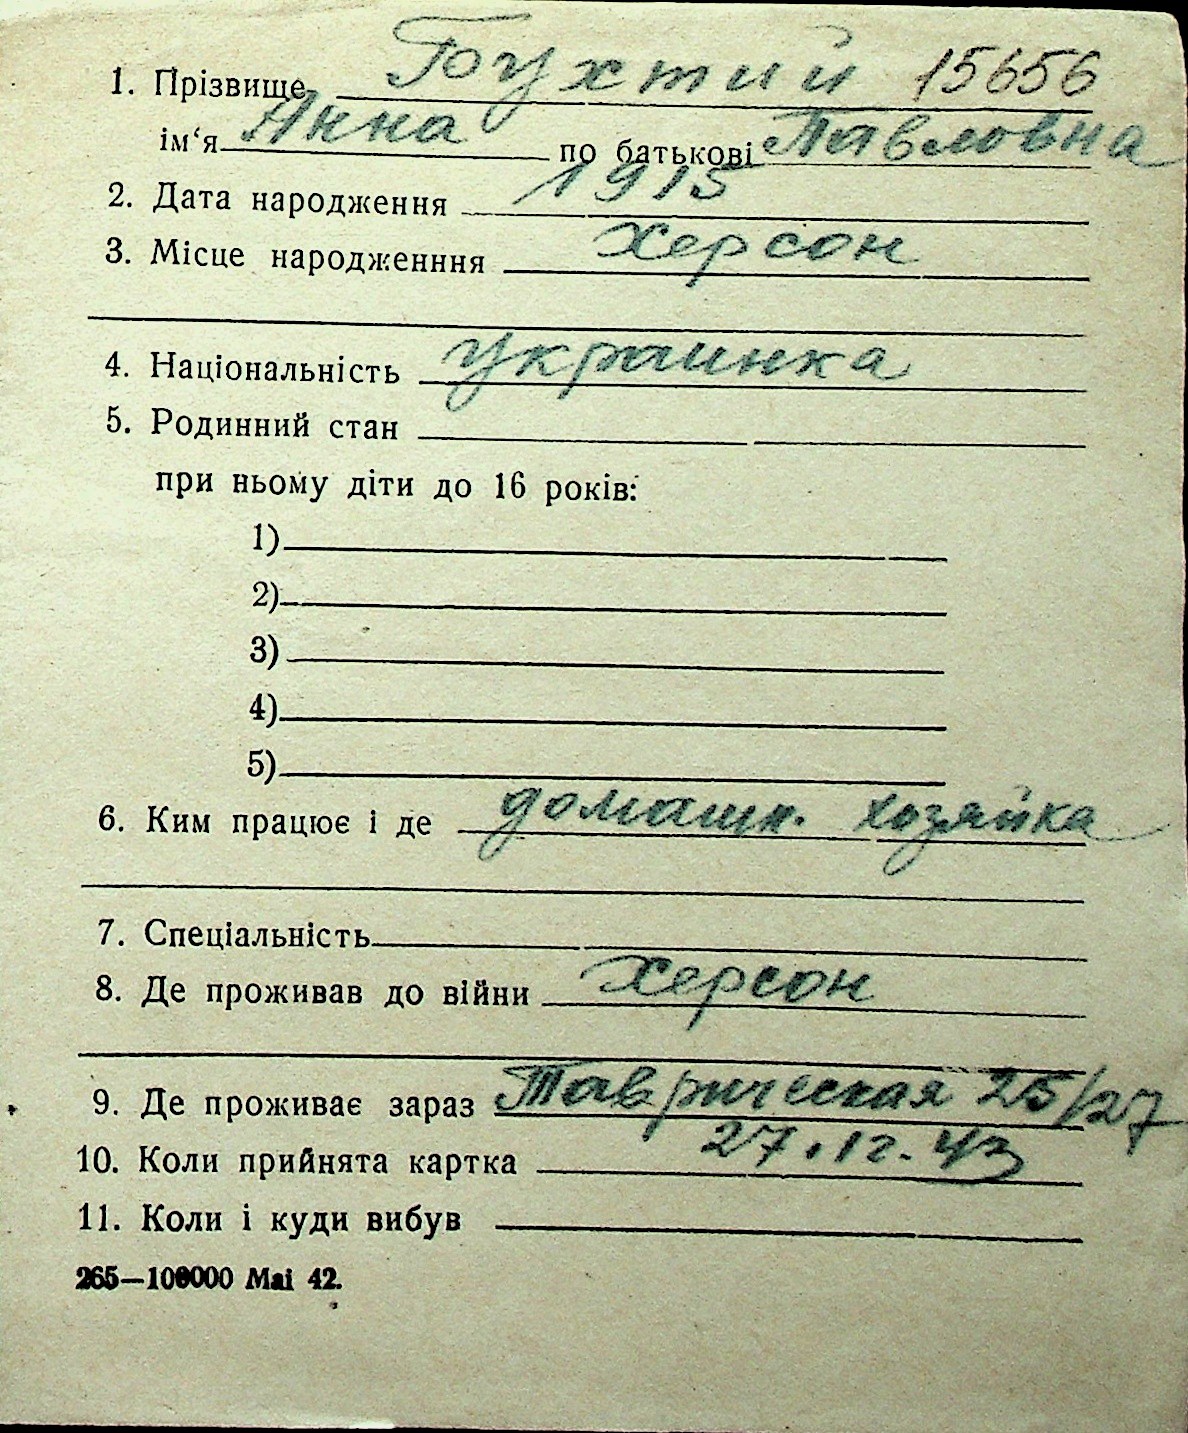 1. Прізвище Бухтий 15656
ім‘я Анна по батькові Павловна
2. Дата народження 1915
3. Місце народженння Херсон
4. Національність украинка
5. Родинний стан
при ньому діти до 16 років:
1)
2)
3)
4)
5)
6. Ким працює і де домашн. хозяйка
7. Спеціальність
8. Де проживав до війни Херсон
9. Де проживає зараз Таврическая 25/27
10. Коли прийнята картка 27.12.43
11. Коли і куди вибув
265—100000 Mai 42.